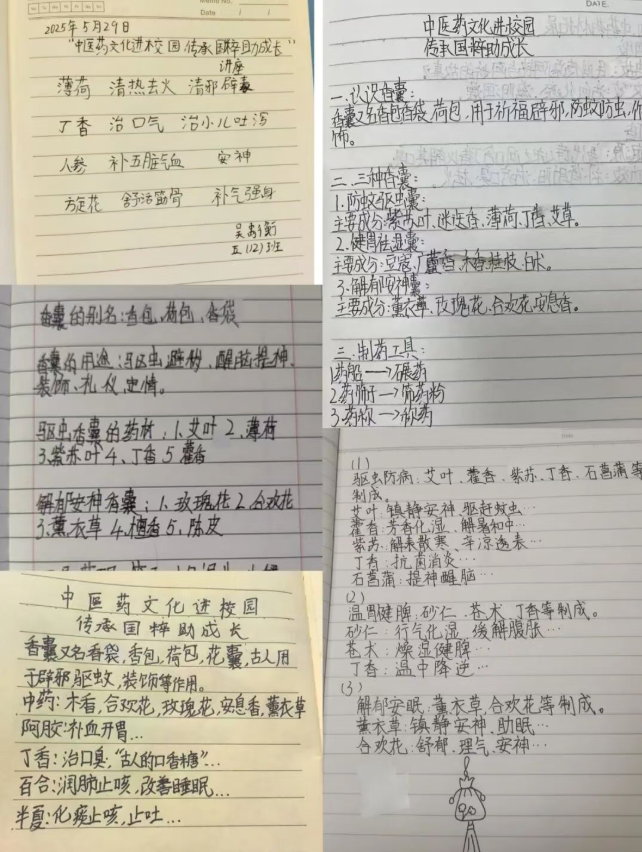 2025年5月29日
"中医药文化进校园 传承国粹助成长"
讲座
薄荷 清热去火 清邪辟毒
丁香 治口气 治小儿吐泻
人参 补五脏气血 安神
方定花 舒活筋骨 补气强身
五(12)班
DATE.
中医药文化进校园
传承国粹助成长
一.认识香囊:
香囊又名香包香袋、荷包,用于祈福辟邪,防蚊防虫,作
饰。
二.三种香囊:
1.防蚊驱虫囊:
主要成分:紫苏叶、迷迭香、薄荷、丁香、艾草。
2.健胃祛湿囊:
主要成分:豆蔻、广藿香、木香、桂枝、白术。
3.解郁安神囊:
主要成分:薰衣草、玫瑰花、合欢花、安息香。
三.制药工具:
1药船→碾药
2.药筛→筛药粉
3.药秤→称药
香囊的别名:香包,荷包、香袋
香囊的用途:驱虫避秽、醒脑提神、
装饰、礼仪、定情。
驱虫香囊的药材:1、艾叶 2、薄荷
3.紫苏叶 4、丁香 5 藿香
解郁安神香囊:1、玫瑰花 2、合欢花
3、薰衣草 4、檀香 5、陈皮
(1)
驱虫防病:艾叶、藿香、紫苏、丁香、石菖蒲等
制成。
艾叶:镇静安神、驱赶蚊虫…
藿香:芳香化湿、解暑和中…
紫苏:解表散寒、辛凉透表…
丁香:抗菌消炎…
石菖蒲:提神醒脑…
(2)
温胃健脾:砂仁、苍术、丁香等制成。
砂仁:行气化湿、缓解腹胀…
苍术:燥湿健脾…
丁香:温中降逆…
(3)
解郁安眠:薰衣草、合欢花等制成。
薰衣草:镇静安神、助眠…
合欢花:舒郁、理气、安神…
中医药文化进校园
传承国粹助成长
香囊又名香袋,香包,荷包,花囊,古人用
于辟邪,驱蚊,装饰等作用。
中药:木香,合欢花,玫瑰花,安息香,薰衣草
阿胶:补血开胃...
丁香:治口臭,"古人的口香糖"...
百合:润肺止咳,改善睡眠...
半夏:化痰止咳,止吐...